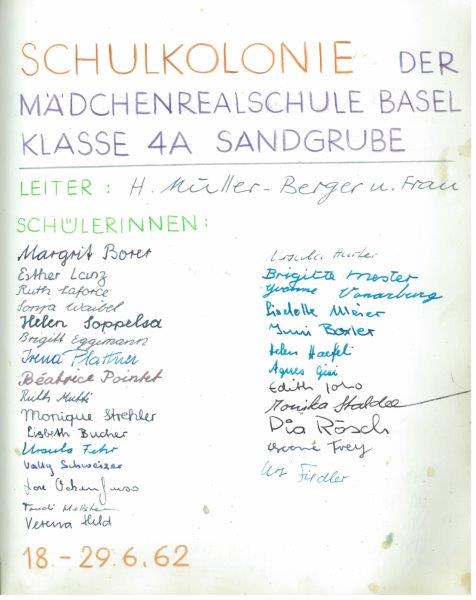 SCHULKOLONIE DER
MÄDCHENREALSCHULE BASEL
KLASSE 4A SANDGRUBE
LEITER : H. Müller-Berger u. Frau
SCHÜLERINNEN:
Margrit Borer
Esther Lanz
Ruth Laforce
Sonja Waibel
Helen Soppelsa
Brigitt Eggimann
Irena Plattner
Béatrice Pointet
Ruth
Monique Strehler
Lisbeth Bucher
Ursula Fehr
Vally Schweizer
Ochenfuss
Trudi
Verena Hild
Ursula
Brigitte Moster
Yvonne Vonarburg
Liselotte Meier
Boxler
Helen Haefeli
Agnes Gisi
Edith Joho
Monika Stalder
Pia Rösch
Yvonne Frey
Fiedler
18. - 29. 6. 62